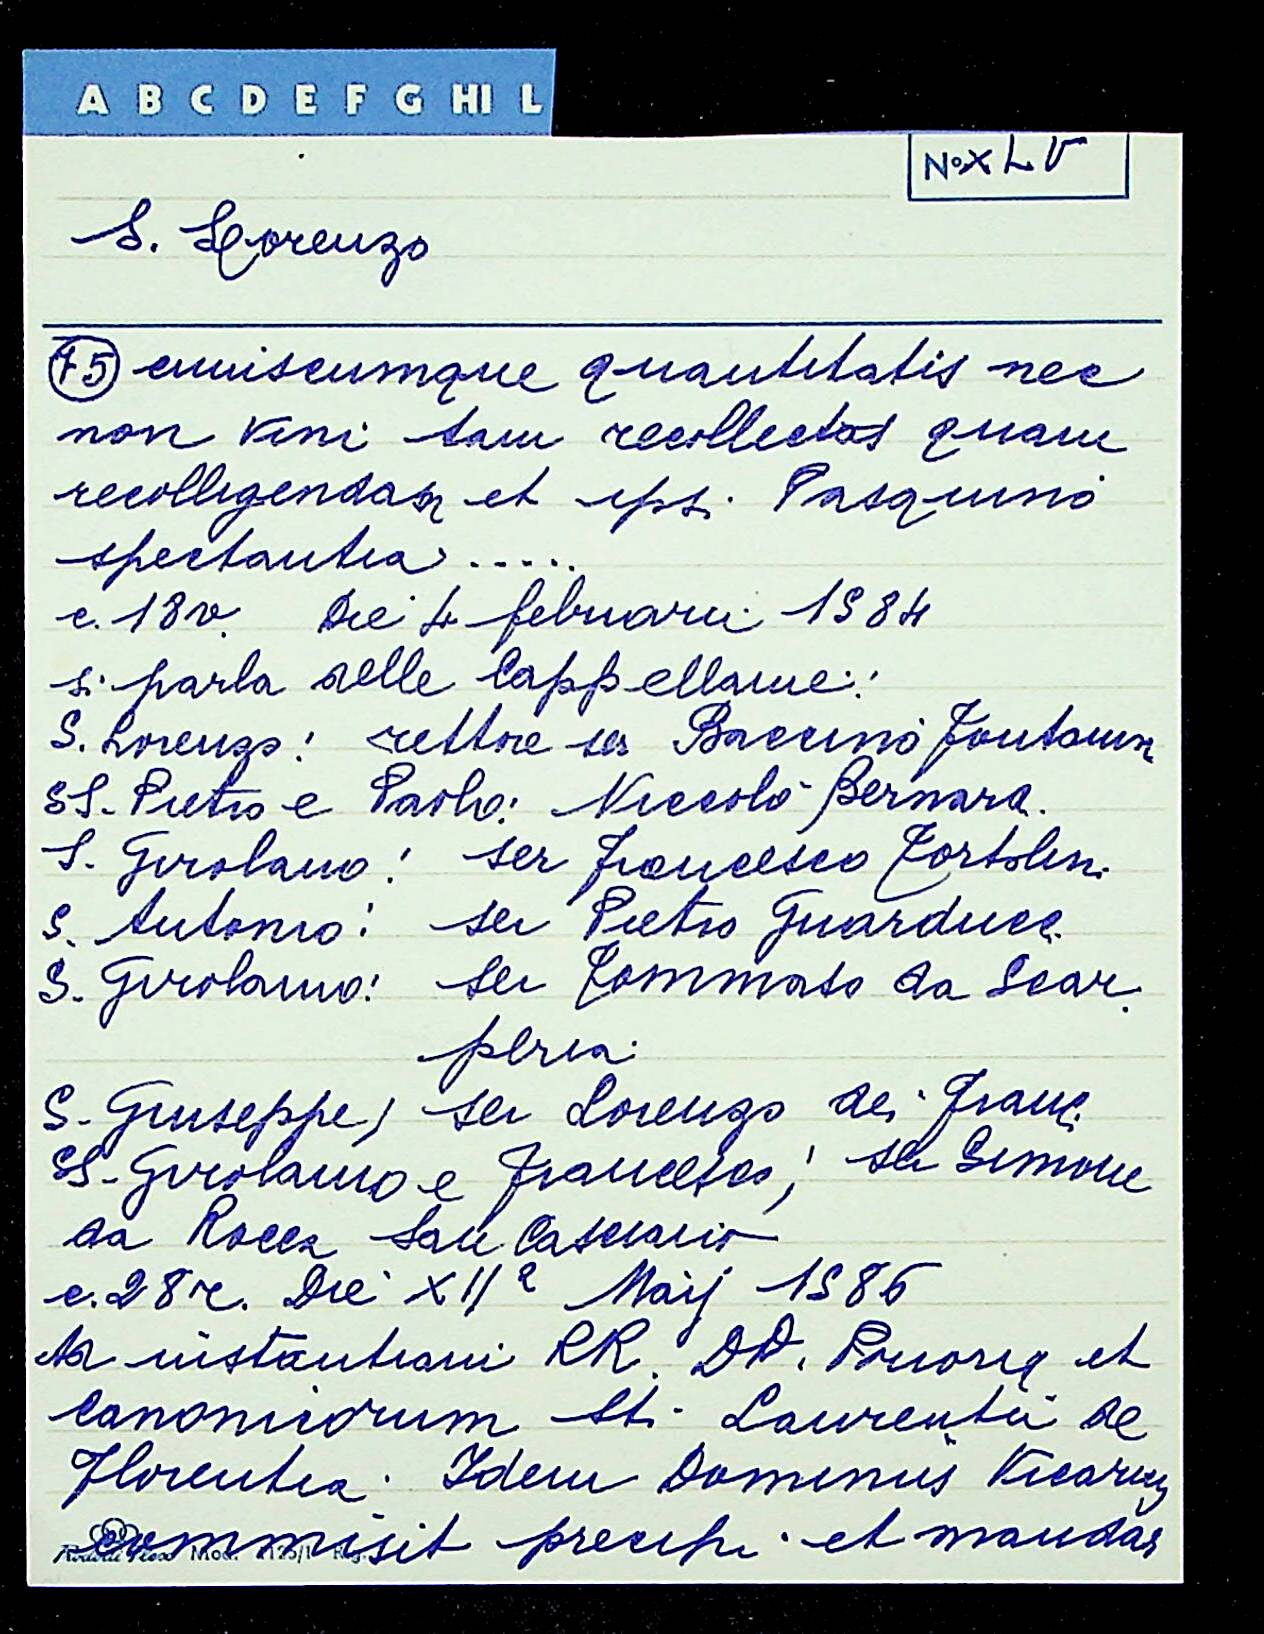 A B C D E F G HI L
No XLV
S. Lorenzo
75 cuiuscumque quantitatis nec
non vini tam recollectos quam
recolligendas et ips. Pasquino
spectantia .....
c. 18v. Die 4 februarii 1584
si parla delle Cappellanie:
S. Lorenzo: rettore ser Baccino Fontanin
SS. Pietro e Paolo: Niccolò Bernard.
S. Girolamo: ser Francesco Tortolin.
S. Antonio: ser Pietro Guarducc.
S. Girolamo: ser Tommaso da Scar
peria.
S. Giuseppe, ser Lorenzo dei Franc.
SS. Girolamo e Francesco; ser Simone
da Rocca San Casciano
c. 28r. Die XIIa Maij 1586
Ad instantiam RR. DD. Prioris et
Canonicorum Sti. Laurentii de
Florentia. Idem Dominus Vicarius
commisit precipi et mandas